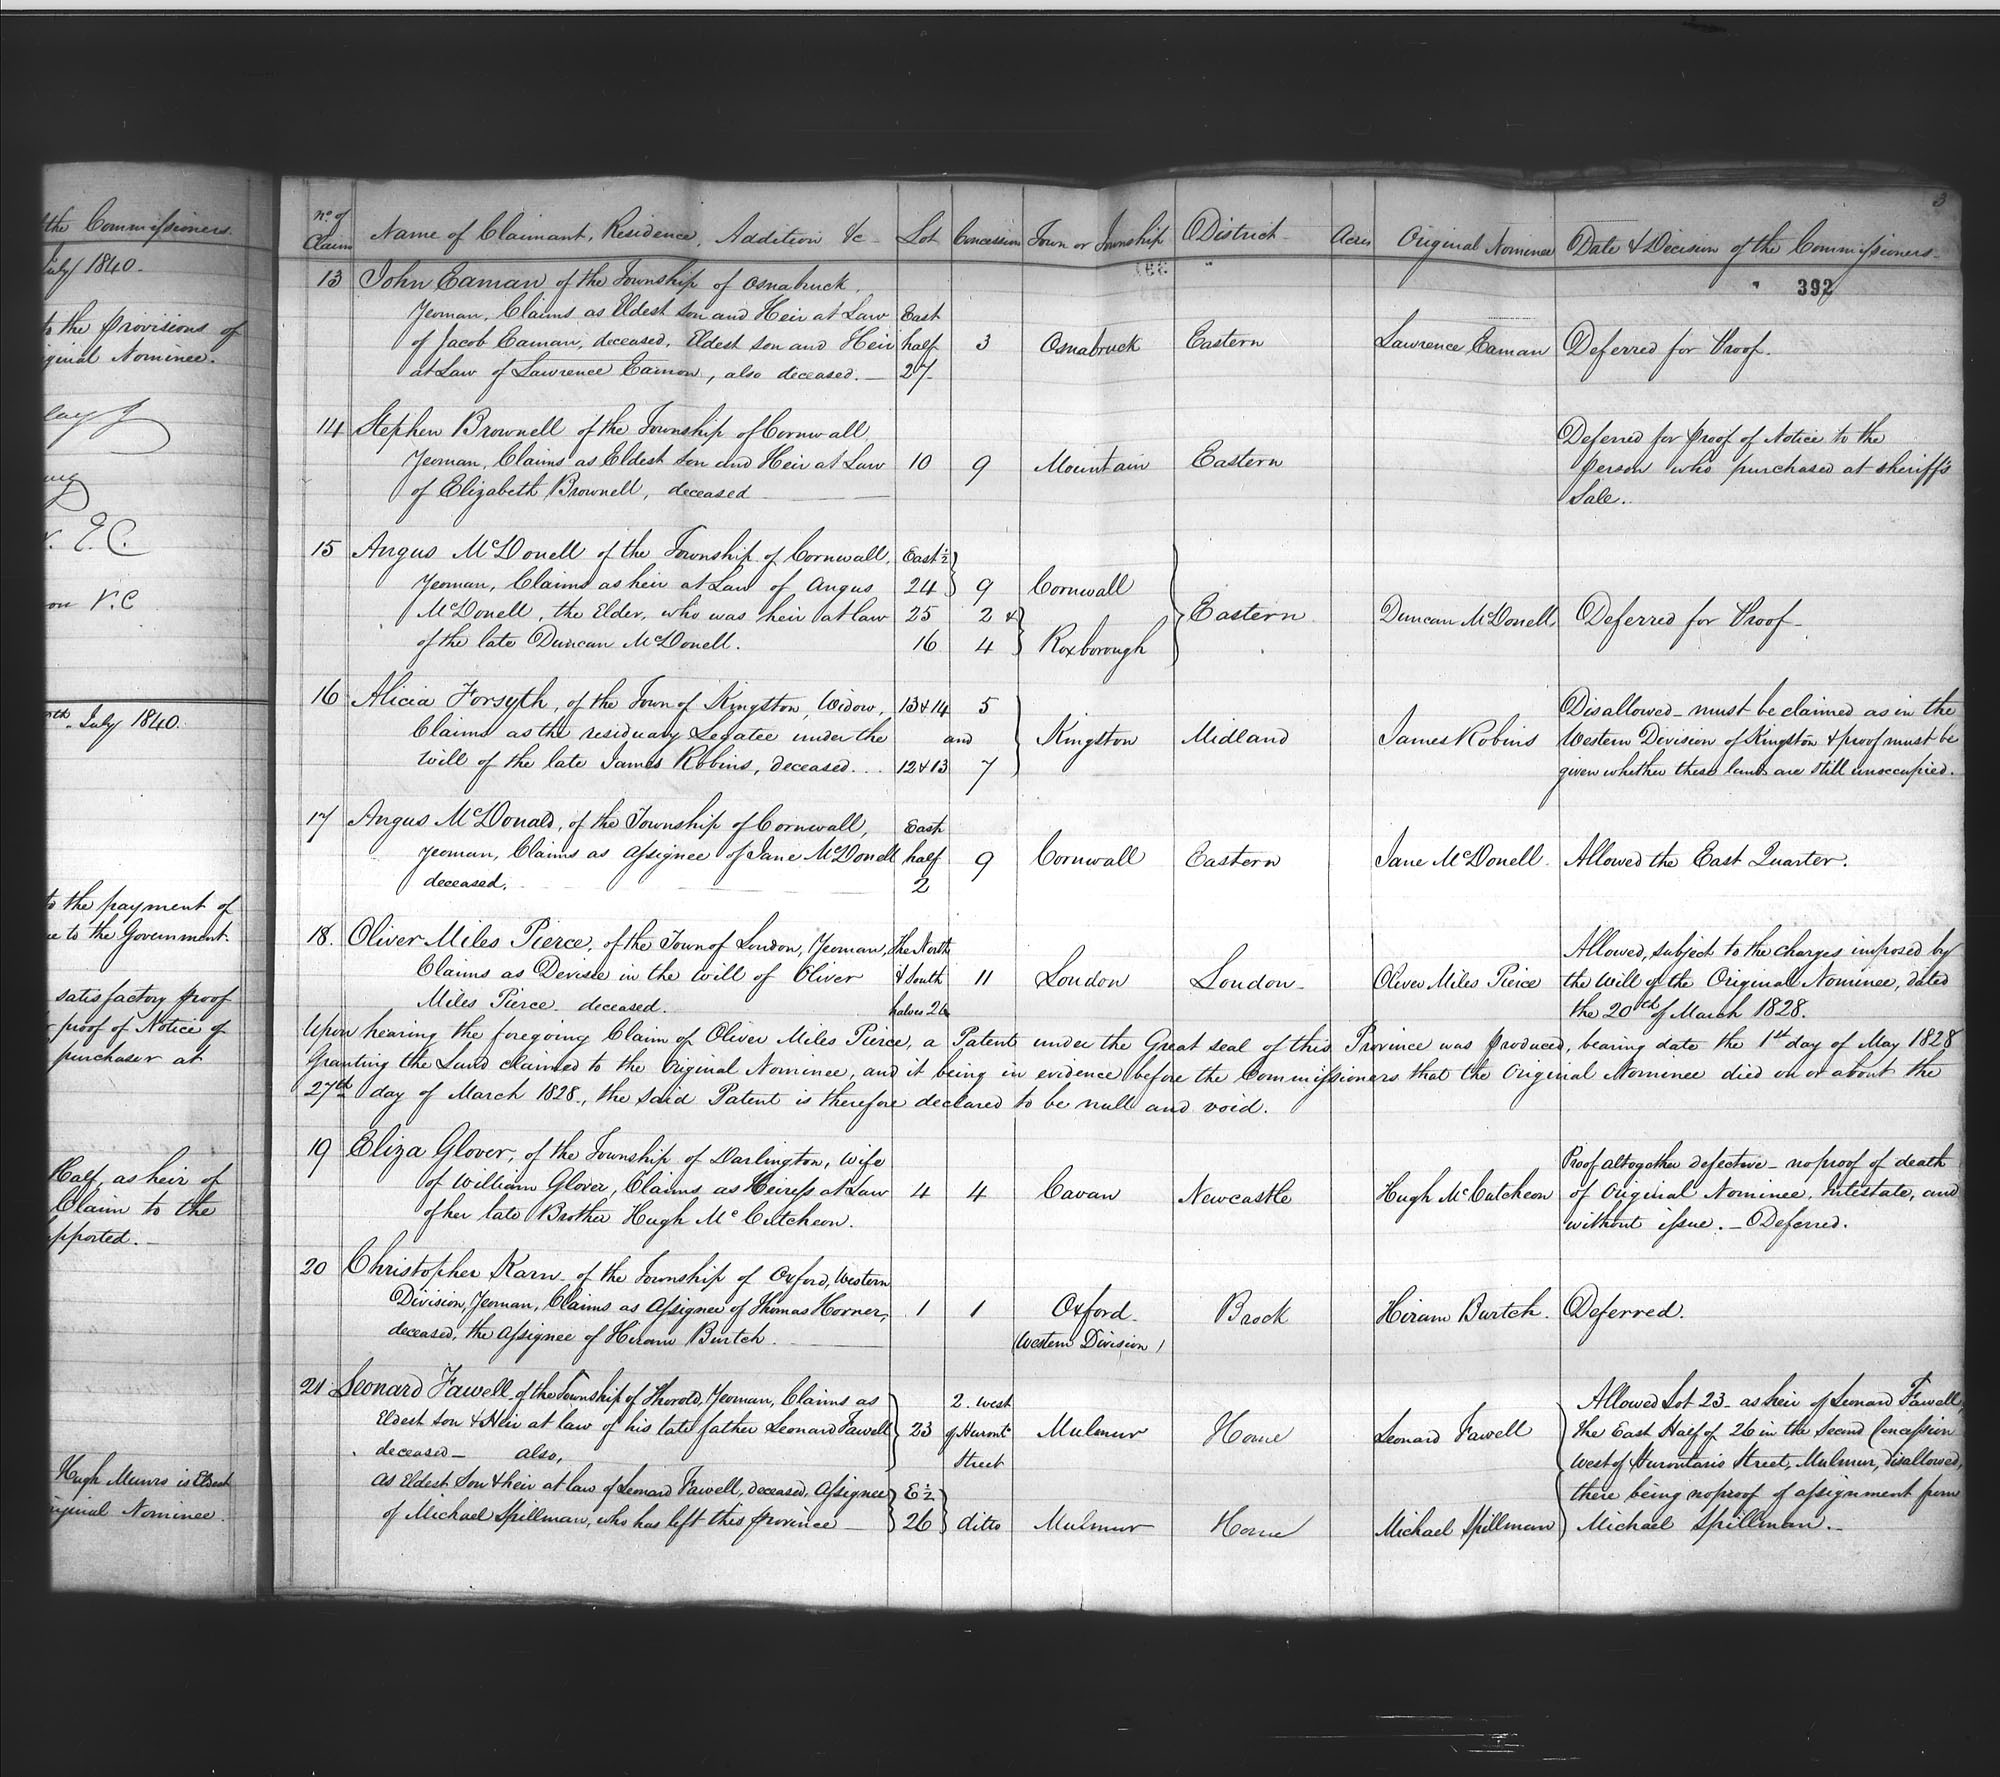 the Commissioners.
July 1840.
to the provisions of
iginal Nominee.
E.C.
V.C
th. July 1840.
to the payment of
ue to the Government.
satisfactory proof
proof of Notice of
purchaser at
Half, as heir of
Claim to the
pported.—
Hugh Munro is Eldest
iginal Nominee.
3
No. of Claim Name of Claimant, Residence, Addition &c Lot Concession Town or Township District Acres Original Nominee Date & Decision of the Commissioners
392
13 John Eaman of the Township of Osnabruck,
Yeoman, Claims as Eldest Son and Heir at Law East
of Jacob Eaman, deceased, Eldest Son and Heir half 3 Osnabruck Eastern Lawrence Eaman Deferred for Proof.
at Law of Lawrence Eamon, also deceased.— 27
14 Stephen Brownell of the Township of Cornwall Deferred for proof of Notice to the
Yeoman, Claims as Eldest Son and Heir at Law 10 9 Mountain Eastern person who purchased at Sheriff's
of Elizabeth Brownell, deceased Sale.
15 Angus McDonell of the Township of Cornwall, East ½
Yeoman, Claims as heir at Law of Angus 24 9 Cornwall
McDonell, the Elder, who was heir at law 25 2 & Eastern Duncan McDonell Deferred for Proof
of the late Duncan McDonell. 16 4 Roxborough
16 Alicia Forsyth, of the Town of Kingston, Widow, 13 & 14 5 Disallowed—must be claimed as in the
Claims as the residuary Legatee under the and Kingston Midland James Robins Western Division of Kingston & proof must be
Will of the late James Robins, deceased... 12 & 13 7 given whether these lands are still unoccupied.
17 Angus McDonald, of the Township of Cornwall, East
Yeoman, Claims as Assignee of Jane McDonell half 9 Cornwall Eastern Jane McDonell Allowed the East Quarter.
deceased. 2
18. Oliver Miles Pierce, of the Town of London, Yeoman, The North Allowed, subject to the charges imposed by
Claims as Devisee in the Will of Oliver & South 11 London London Oliver Miles Pierce the Will of the Original Nominee, dated
Miles Pierce deceased. halves 26 the 20th of March 1828.
Upon hearing the foregoing Claim of Oliver Miles Pierce, a Patent under the Great Seal of this Province was produced, bearing date the 1st day of May 1828
Granting the Land claimed to the Original Nominee, and it being in evidence before the Commissioners that the Original Nominee died on or about the
27th day of March 1828, the said Patent is therefore declared to be null and void.
19 Eliza Glover, of the Township of Darlington, Wife Proof altogether defective—no proof of death
of William Glover, Claims as Heiress at Law 4 4 Cavan Newcastle Hugh McCutcheon of Original Nominee, Intestate, and
of her late Brother Hugh McCutcheon. without issue.—Deferred.
20 Christopher Karn of the Township of Oxford, Western
Division, Yeoman, Claims as Assignee of Thomas Horner, 1 1 Oxford Brock Hiram Burtch. Deferred.
deceased, the Assignee of Hiram Burtch. (Western Division)
21 Leonard Fawell of the Township of Thorold, Yeoman, Claims as 2. West Allowed Lot 23 as heir of Leonard Fawell,
Eldest Son & Heir at law of his late father Leonard Fawell 23 of Huront° Mulmur Home Leonard Fawell the East Half of 26 in the Second Concession
deceased— also, Street West of Hurontario Street, Mulmur, disallowed,
As Eldest Son & heir at law of Leonard Fawell, deceased, Assignee E ½ there being no proof of assignment from
of Michael Spillman, who has left this province— 26 ditto Mulmur Home Michael Spillman Michael Spillman.—